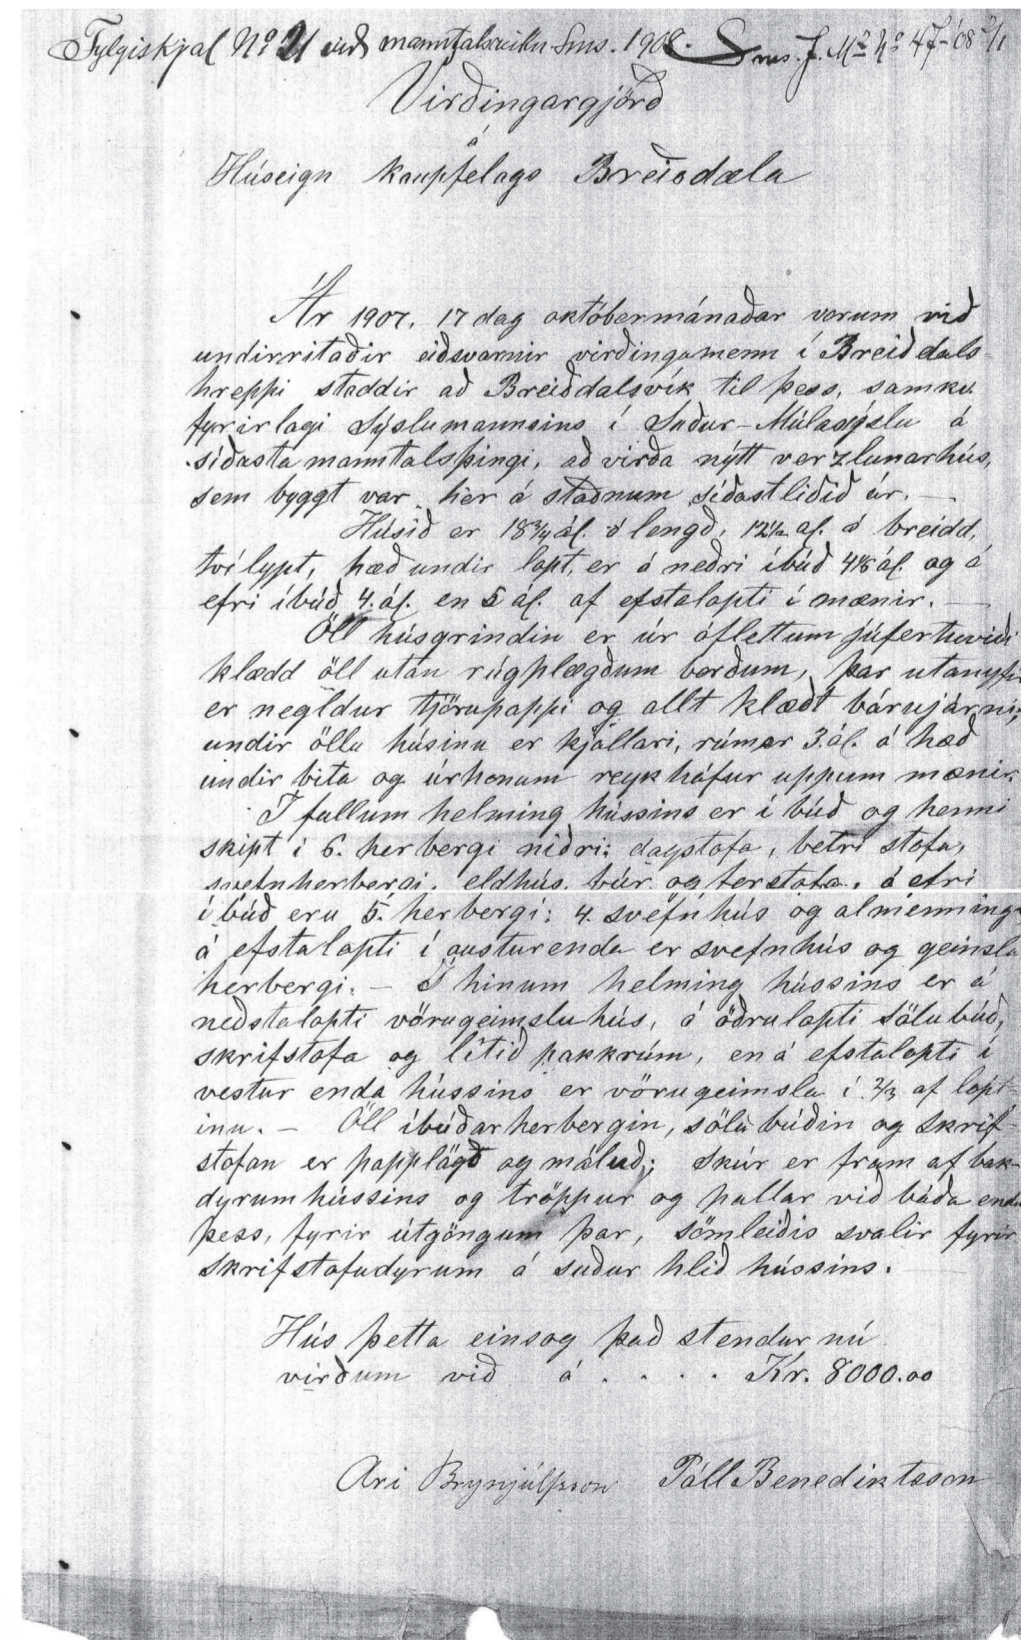 Fylgiskjal No 21 við manntalsreikn. Sms. 1908. Sms. J. M No 47-'08 2/1
Virðingargjörð
á
Húseign kaupfelags Breiðdæla
Ár 1907, 17 dag októbermánaðar vorum við
undirritaðir eiðsvarnir virðingamenn í Breiðdals-
hreppi staddir að Breiðdalsvík til þess, samkv.
fyrirlagi Sýslumannsins í Suður-Múlasýslu á
síðasta manntalsþingi, að virða nýtt verzlunarhús,
sem byggt var hér á staðnum síðastliðið ár. —
Húsið er 18 3/4 ál. á lengd, 12 1/2 al. á breidd,
tvílypt, hæð undir lopt, er á neðri íbúð 4 1/6 ál. og á
efri íbúð 4. ál. en 5 ál. af efstalopti í mænir. —
Öll húsgrindin er úr óflettum júfertuviði
klædd öll utan rúgplægðum borðum, þar utanyfir
er negldur tjörupappi og allt klæðt bárujárni;
undir öllu húsinu er kjallari, rúmar 3. ál. á hæð
undir bita og úr honum reykháfur uppum mænir.
Í fullum helming hússins er íbúð og henni
skipt í 6. herbergi niðri: dagstofa, betri stofa,
svefnherbergi, eldhús, búr og forstofa. á efri
íbúð eru 5. herbergi: 4. svefnhús og almennings-
á efstalopti í austurenda er svefnhús og geimslu
herbergi. — Í hinum helming hússins er á
neðstalopti vörugeimsluhús, á öðrulopti sölubúð,
skrifstofa og lítið pakkrúm, en á efstalopti í
vestur enda hússins er vörugeimsla í 2/3 af lopt-
inu. — Öll íbúðarherbergin, sölubúðin og skrif-
stofan er papplögð og máluð; skúr er fram af bak-
dyrum hússins og tröppur og pallar við báða enda
þess, fyrir útgöngum þar, sömleiðis svalir fyrir
skrifstofudyrum á suður hlið hússins.
Hús þetta einsog það stendur nú
virðum við á . . . . Kr. 8000.00
Ari Brynjúlfsson Páll Benediktsson